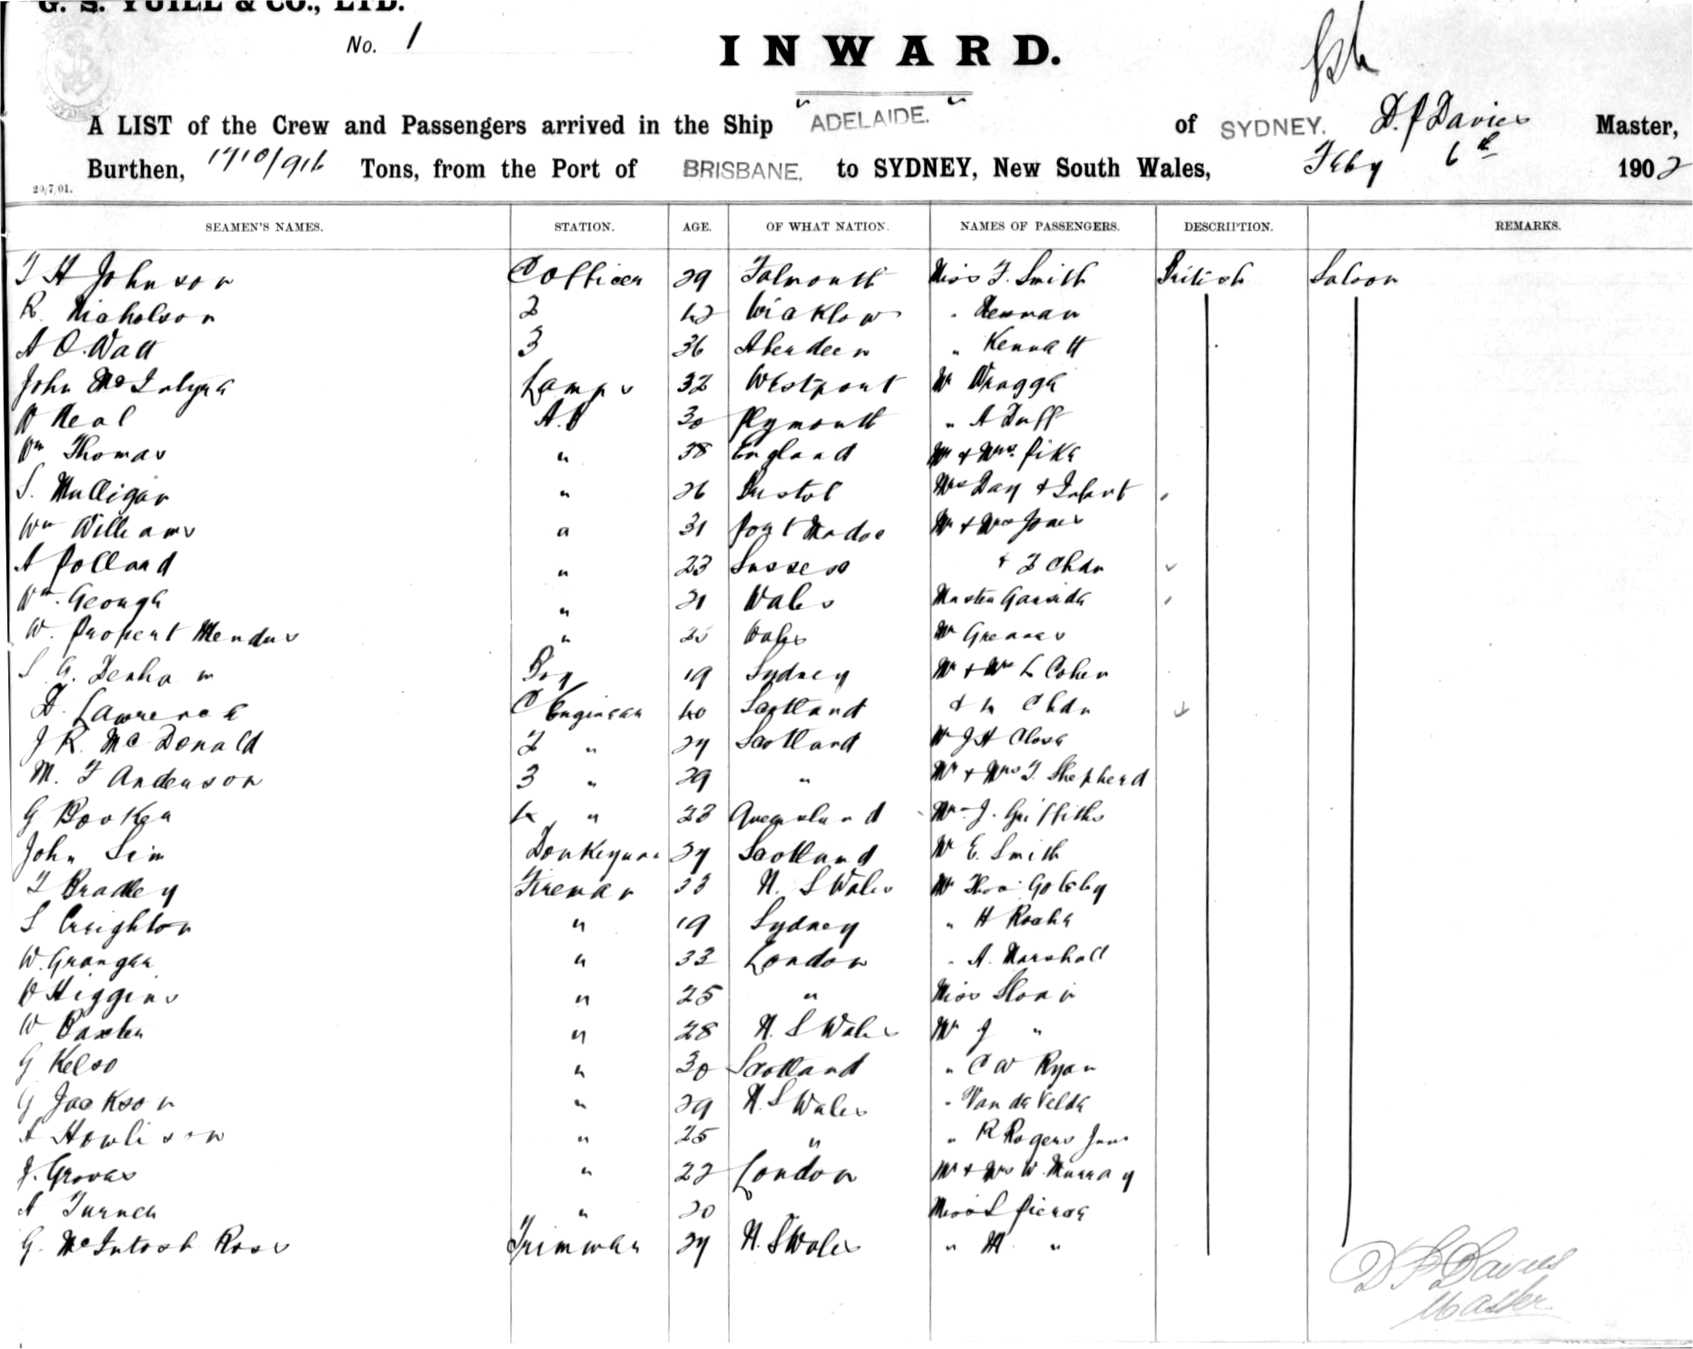 G. S. YUILL & CO., LTD.
No. 1
INWARD.
A LIST of the Crew and Passengers arrived in the Ship "ADELAIDE." of SYDNEY. D. P Davies Master,
Burthen, 1710/916 Tons, from the Port of BRISBANE. to SYDNEY, New South Wales, Feby 6th 1902
20/7/01.
SEAMEN'S NAMES. STATION. AGE. OF WHAT NATION. NAMES OF PASSENGERS. DESCRIPTION. REMARKS.
T H Johnson C Officer 29 Falmouth Miss F. Smith British Saloon
R. Nicholson 2 42 Wicklow "
A O. Watt 3 36 Aberdeen " Kennatt
John McIntyre Lamps 32 Westport Mr Wragge
W Neal A.B 30 Plymouth " A Duff
Wm Thomas " 38 England Mr & Mrs. Pike
S. Mulligan " 26 Bristol Mrs Day & Infant
Wm Williams " 31 Port Madoc Mr & Mrs Jones
A Pollard " 23 Sussex & 2 Chdn
Wm. George " 21 Wales Master Garside
W. Propert Mendus " Wales Mr Greaves
S G. Denham Boy 19 Sydney Mr & Mrs L Cohen
D. Lawrence C Engineer 40 Scotland & 4 Chdn
J R. McDonald 2 " 27 Scotland Mr J H Close
M. T Anderson 3 " 29 " Mr & Mrs T Shepherd
G Booker 4 " 23 Queensland Mr J. Griffiths
John Sim Donkeyman 27 Scotland Mr E. Smith
T Bradley Fireman 33 N. S Wales Mr Thos.
S Creighton " 19 Sydney " H Roche
W. Granger " 33 London " A. Marshall
W Higgins " 25 " Miss Sloan
W Baxter " 28 N. S Wales Mr J "
G Kelso " 30 Scotland " C W Ryan
G Jackson " 29 N. S Wales " Van de Velde
A Howlison " 25 " " R Rogers Junr
J. Groves " 22 London Mr & Mrs W. Murray
A Turner " 20 Miss L Pierce
G. McIntosh Ross Trimmer 27 N. S Wales " M. "
D P Davies
Master